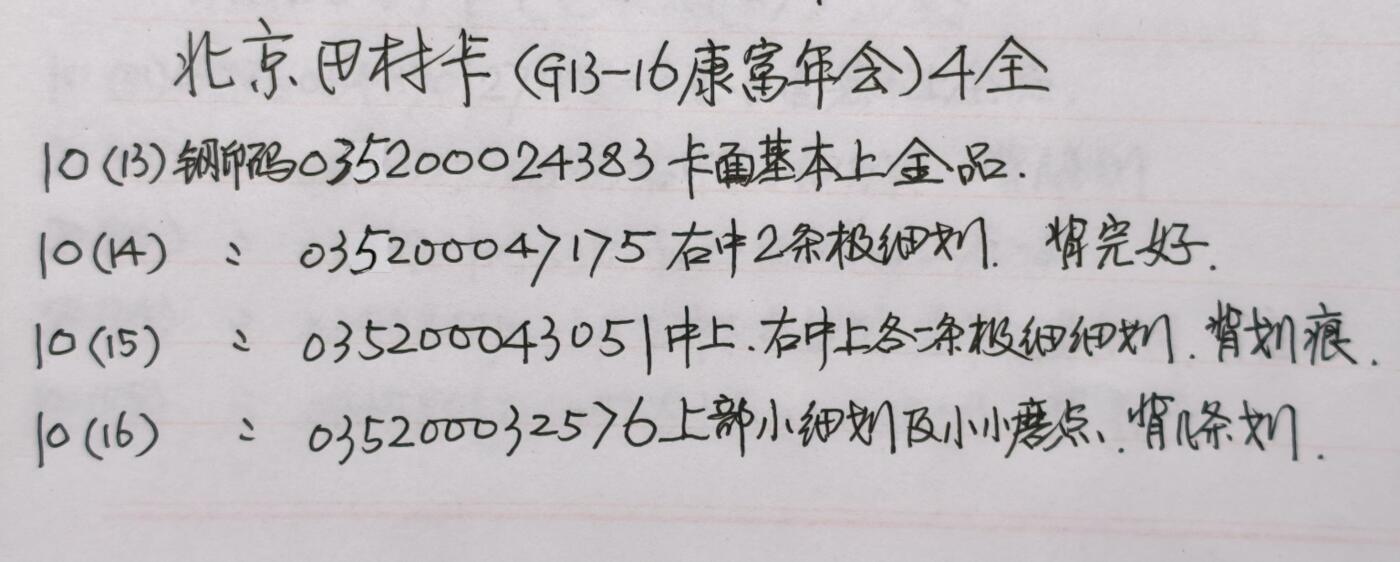 北京田村卡(G13-16康富年会)4全
10(13)钢印码035200024383卡面基本上金品.
10(14) : 035200047175右中2条极细划. 背完好.
10(15) : 035200043051中上.右中上各一条极细细划.背划痕.
10(16) : 035200032576上部小细划及小小磨点、背几条划.